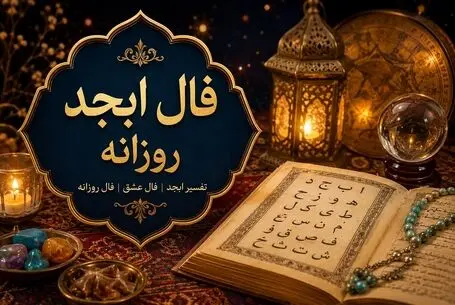 فال ابجد
روزانه
تفسیر ابجد | فال عشق | فال روزانه
ا ب ج د
ه و ز ح
ط ی ک ل
م ن س ع
ف ص ق ر
ش ت ث خ